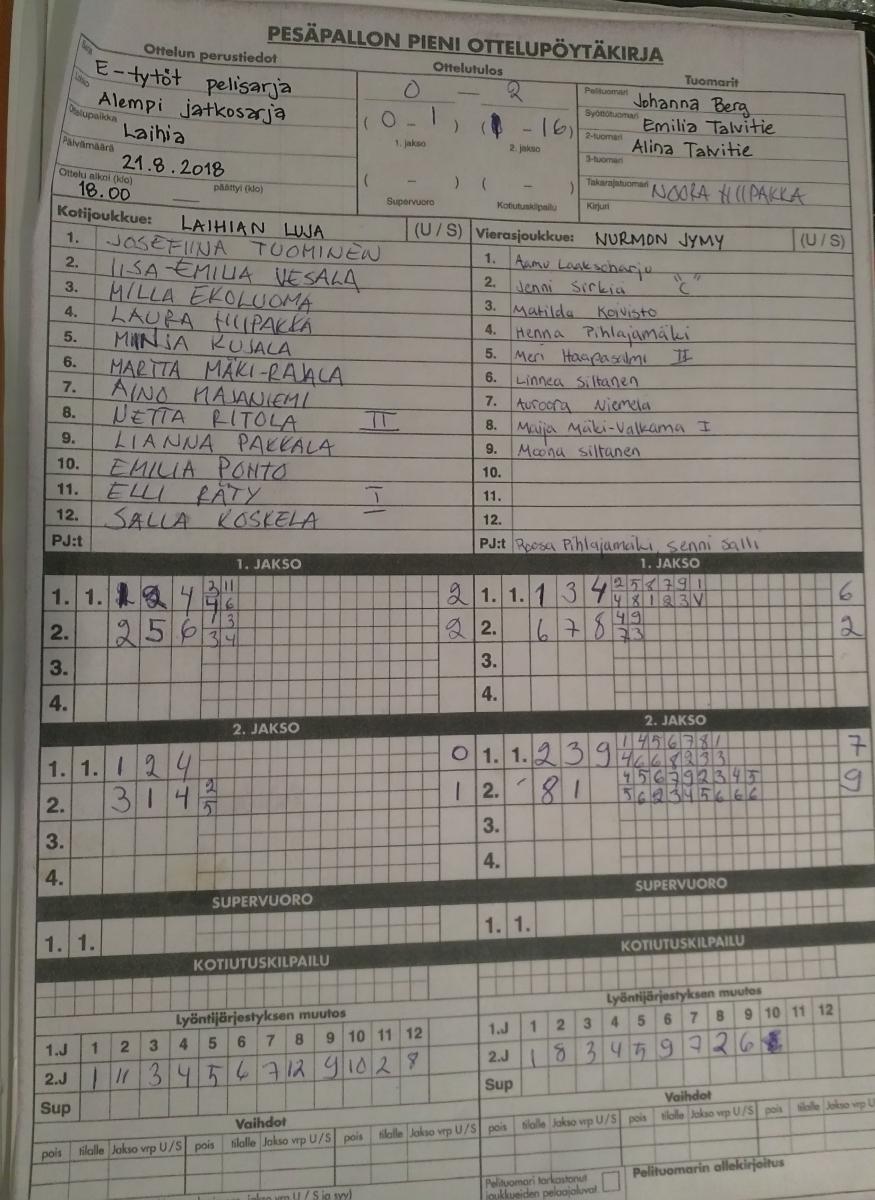 PESÄPALLON PIENI OTTELUPÖYTÄKIRJA
Ottelun perustiedot
E-tytöt pelisarja
Alempi jatkosarja
Ottelupaikka Laihia
Päivämäärä 21.8.2018
Ottelu alkoi (klo) 18.00 päättyi (klo)
Ottelutulos
0 - 2
(0 - 1) ( - 16)
1. jakso 2. jakso
( - ) ( - )
Supervuoro Kotiutuskilpailu
Tuomarit
Pelituomari Johanna Berg
Syöttötuomari Emilia Talvitie
2-tuomari Alina Talvitie
3-tuomari
Takarajatuomari NOORA HIIPAKKA
Kirjuri
Kotijoukkue: LAIHIAN LUJA (U / S)
1. JOSEFIINA TUOMINEN
2. IISA-EMILIA VESALA
3. MILLA EKOLUOMA
4. LAURA HIIPAKKA
5. MINJA KUJALA
6. MARTTA MÄKI-RAJALA
7. AINO MAJANIEMI
8. NETTA RITOLA II
9. LIANNA PAKKALA
10. EMILIA POHTO
11. ELLI RÄTY I
12. SALLA KOSKELA
PJ:t
Vierasjoukkue: NURMON JYMY (U / S)
1. Aamu Laakscharju
2. Jenni Sirkiä "C"
3. Matilda Koivisto
4. Henna Pihlajamäki
5. Meri Haapasalmi II
6. Linnea Siltanen
7. Auroora Niemelä
8. Maija Mäki-Valkama I
9. Moona Siltanen
10.
11.
12.
PJ:t Roosa Pihlajamäki, Senni Salli
1. JAKSO
1. 1. 2 4 3 11 2
4 6
2. 2 5 6 1 3 2
3 4
3.
4.
1. JAKSO
1. 1. 1 3 4 2 5 8 7 9 1 6
4 8 1 2 3 V
2. 6 7 8 4 9 2
7 3
3.
4.
2. JAKSO
1. 1. 1 2 4 0
2. 3 1 4 2 1
5
3.
4.
2. JAKSO
1. 1. 2 3 9 1 4 5 6 7 8 1 7
4 6 6 8 2 3 3
2. 8 1 4 5 6 7 9 2 3 4 5 9
5 6 2 3 4 5 6 6 6
3.
4.
SUPERVUORO
1. 1.
SUPERVUORO
1. 1.
KOTIUTUSKILPAILU
KOTIUTUSKILPAILU
Lyöntijärjestyksen muutos
1.J 1 2 3 4 5 6 7 8 9 10 11 12
2.J 1 11 3 4 5 6 7 12 9 10 2 8
Sup
Lyöntijärjestyksen muutos
1.J 1 2 3 4 5 6 7 8 9 10 11 12
2.J 1 8 3 4 5 9 7 2 6
Sup
Vaihdot
pois tilalle Jakso vrp U/S pois tilalle Jakso vrp U/S pois tilalle Jakso vrp U/S
Vaihdot
pois tilalle Jakso vrp U/S pois tilalle Jakso vrp U/S pois tilalle Jakso vrp
Pelituomari tarkastanut
joukkueiden pelaajaluvat
Pelituomarin allekirjoitus